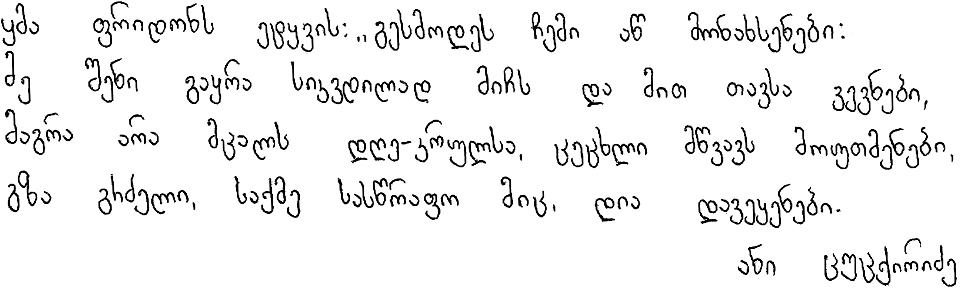 ყმა ფრიდონს ეტყვის: „გესმოდეს ჩემი აწ მონახსენები:
მე შენი გაყრა სიკვდილად მიჩს და მით თავსა ვევნები,
მაგრა არა მცალს დღე-კრულსა, ცეცხლი მწვავს მოუთმენები,
გზა გრძელი, საქმე სასწრაფო მიც, დია დავეყენები.
ანი ცუცქირიძე